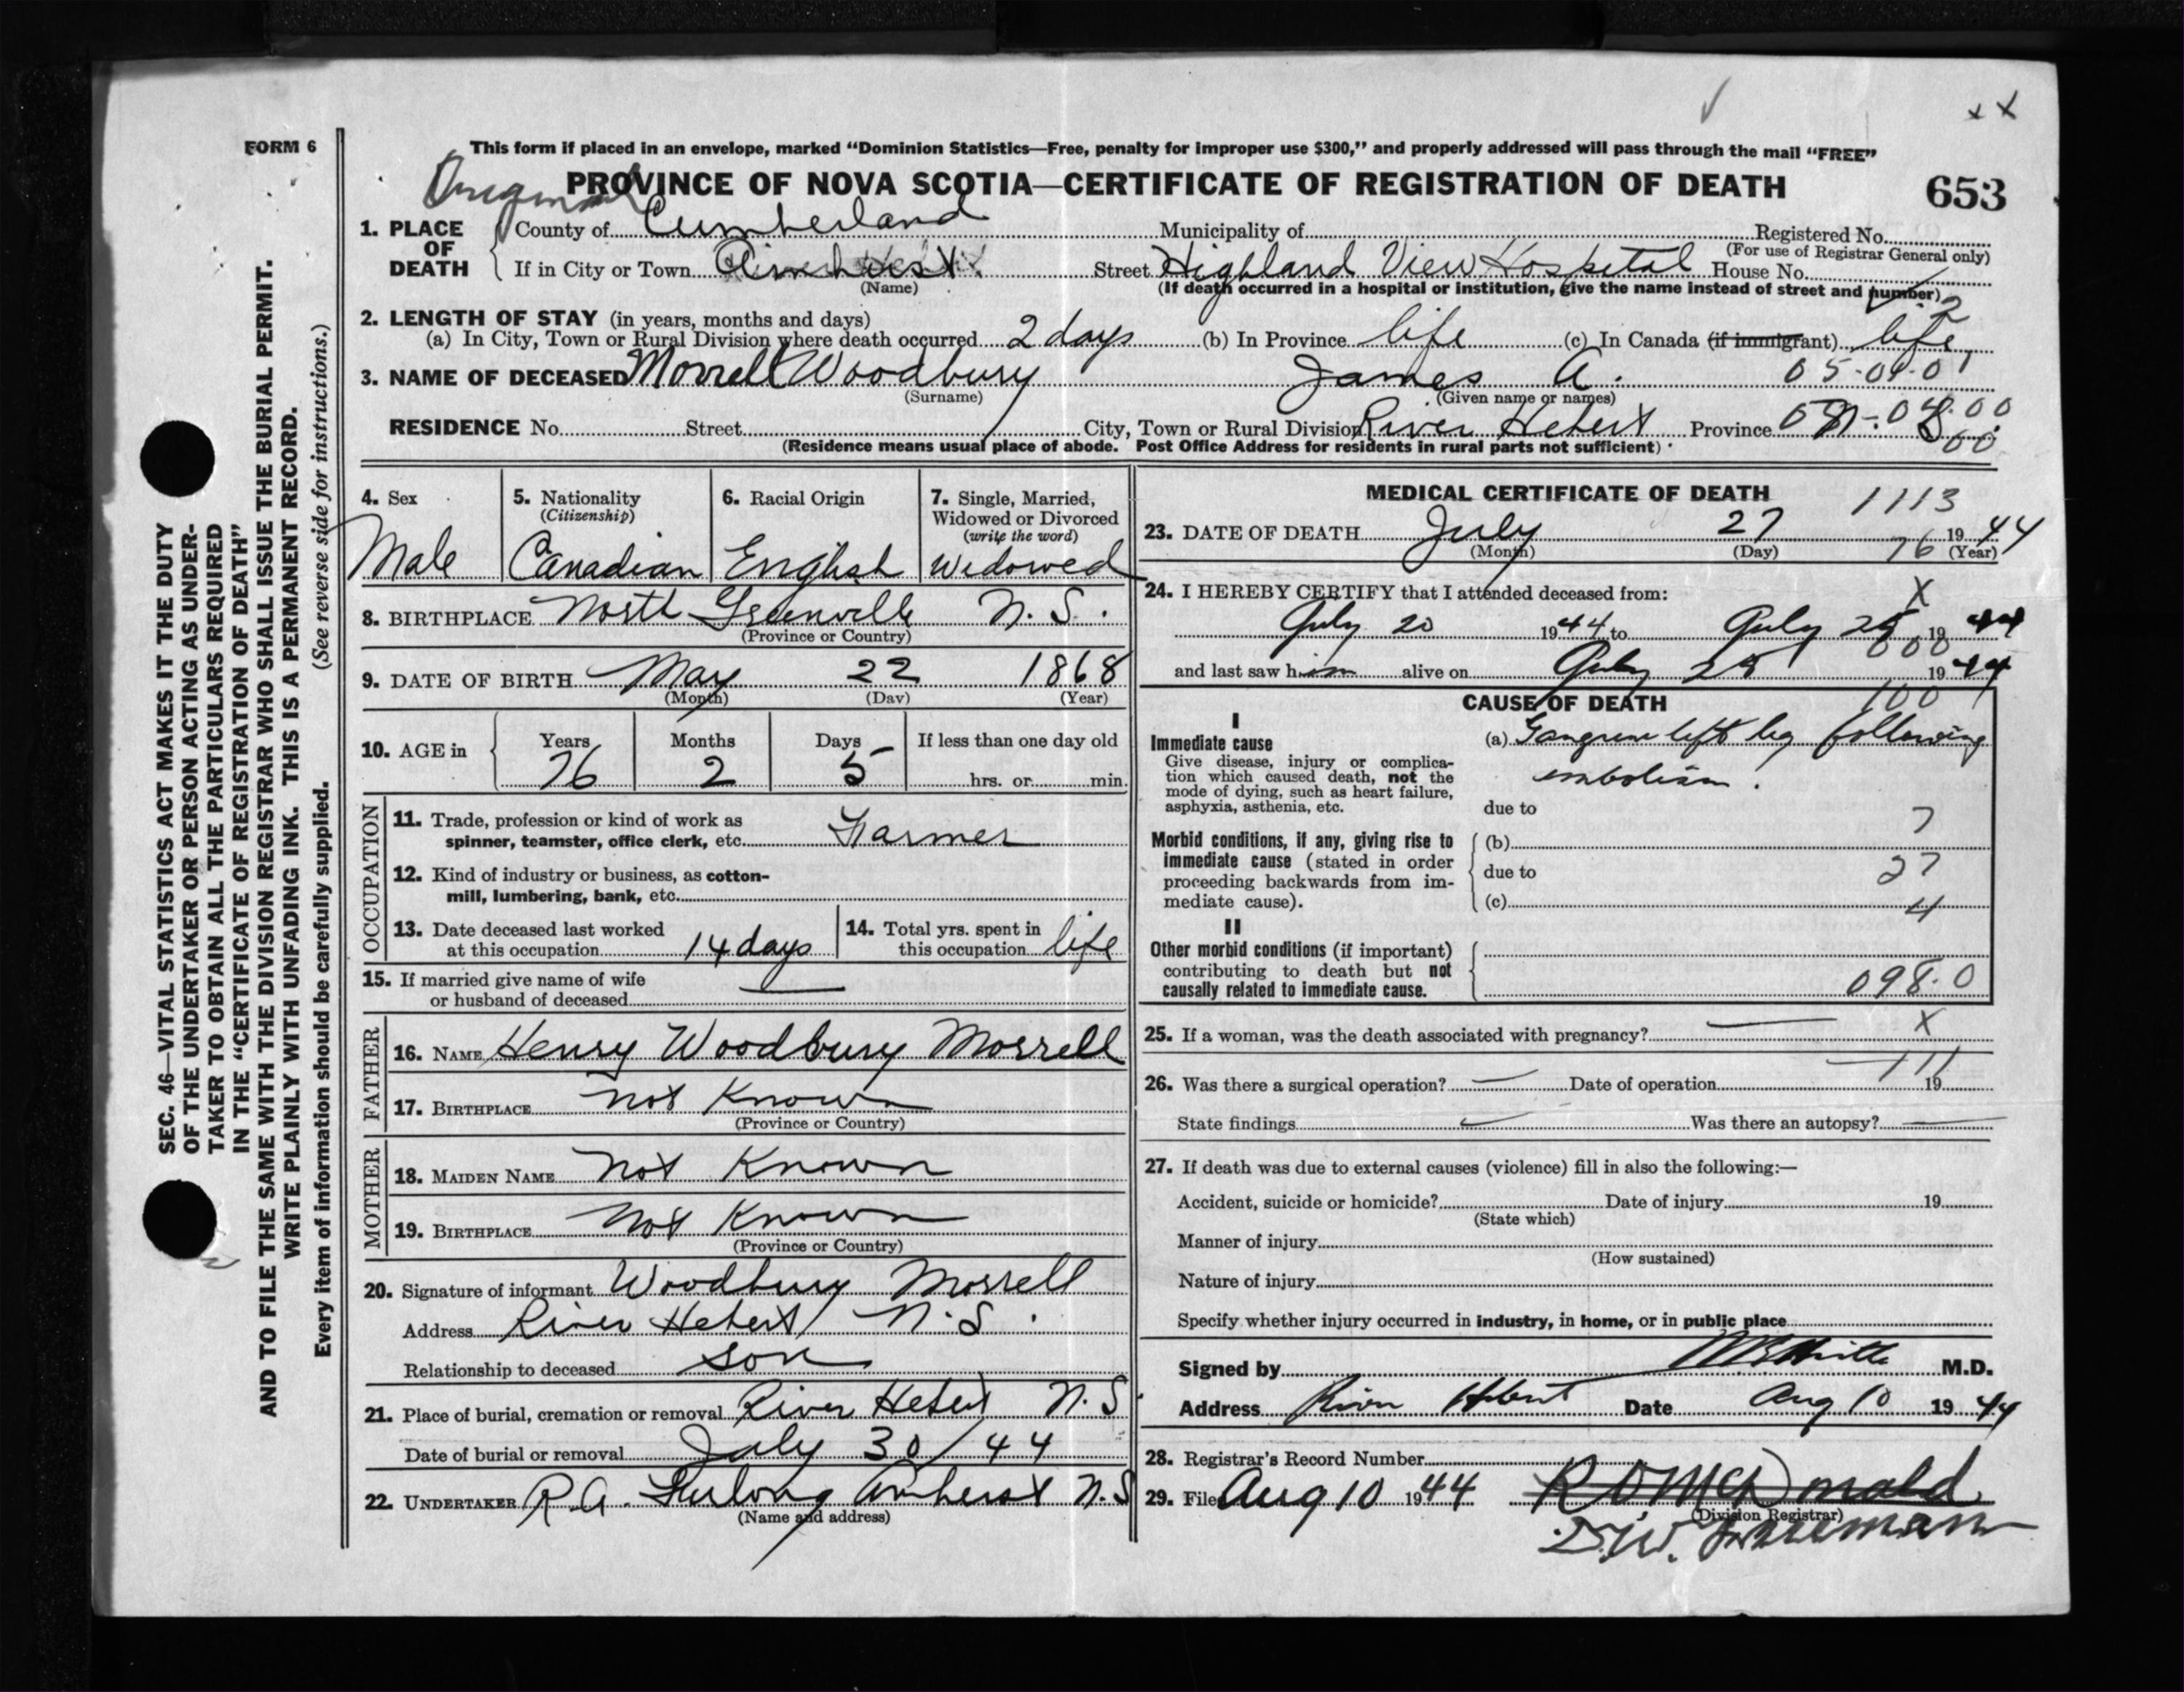 FORM 6
This form if placed in an envelope, marked "Dominion Statistics—Free, penalty for improper use $300," and properly addressed will pass through the mail "FREE"
Original
PROVINCE OF NOVA SCOTIA—CERTIFICATE OF REGISTRATION OF DEATH
653
1. PLACE OF DEATH
County of Cumberland Municipality of Registered No.
(For use of Registrar General only)
If in City or Town Amherst Street Highland View Hospital House No.
(Name) (If death occurred in a hospital or institution, give the name instead of street and number)
2. LENGTH OF STAY (in years, months and days)
(a) In City, Town or Rural Division where death occurred 2 days (b) In Province life (c) In Canada (if immigrant) life
3. NAME OF DECEASED Morrell Woodbury James A. 05-01-01
(Surname) (Given name or names)
RESIDENCE No. Street City, Town or Rural Division River Hebert Province N. S.
(Residence means usual place of abode. Post Office Address for residents in rural parts not sufficient)
4. Sex
Male
5. Nationality
(Citizenship)
Canadian
6. Racial Origin
English
7. Single, Married, Widowed or Divorced
(write the word)
Widowed
8. BIRTHPLACE North Greenville N. S.
(Province or Country)
9. DATE OF BIRTH May 22 1868
(Month) (Day) (Year)
10. AGE in Years Months Days If less than one day old
76 2 5 hrs. or min.
OCCUPATION
11. Trade, profession or kind of work as
spinner, teamster, office clerk, etc. Farmer
12. Kind of industry or business, as cotton-
mill, lumbering, bank, etc.
13. Date deceased last worked
at this occupation 14 days
14. Total yrs. spent in
this occupation life
15. If married give name of wife
or husband of deceased —
FATHER
16. NAME Henry Woodbury Morrell
17. BIRTHPLACE Not Known
(Province or Country)
MOTHER
18. MAIDEN NAME Not Known
19. BIRTHPLACE Not Known
(Province or Country)
20. Signature of informant Woodbury Morrell
Address River Hebert N. S.
Relationship to deceased son
21. Place of burial, cremation or removal River Hebert N. S.
Date of burial or removal July 30/44
22. UNDERTAKER R. A. Furlong Amherst N. S.
(Name and address)
MEDICAL CERTIFICATE OF DEATH
1113
23. DATE OF DEATH July 27 1944
(Month) (Day) 76 (Year)
24. I HEREBY CERTIFY that I attended deceased from: X
July 20 1944 to July 1944
000
and last saw him alive on July 1944
100
CAUSE OF DEATH
I
Immediate cause
Give disease, injury or complica-
tion which caused death, not the
mode of dying, such as heart failure,
asphyxia, asthenia, etc.
(a) Gangrene left leg following
embolism.
due to
7
Morbid conditions, if any, giving rise to
immediate cause (stated in order
proceeding backwards from im-
mediate cause).
(b)
due to 27
(c) 4
II
Other morbid conditions (if important)
contributing to death but not
causally related to immediate cause.
098.0
25. If a woman, was the death associated with pregnancy? — X
111
26. Was there a surgical operation? — Date of operation 19
State findings Was there an autopsy? —
27. If death was due to external causes (violence) fill in also the following:—
Accident, suicide or homicide? Date of injury 19
(State which)
Manner of injury
(How sustained)
Nature of injury
Specify whether injury occurred in industry, in home, or in public place
Signed by M.D.
Address River Hebert Date Aug 10 1944
28. Registrar's Record Number
29. Filed Aug 10 1944 R D McDonald
(Division Registrar)
SEC. 46—VITAL STATISTICS ACT MAKES IT THE DUTY
OF THE UNDERTAKER OR PERSON ACTING AS UNDER-
TAKER TO OBTAIN ALL THE PARTICULARS REQUIRED
IN THE "CERTIFICATE OF REGISTRATION OF DEATH"
AND TO FILE THE SAME WITH THE DIVISION REGISTRAR WHO SHALL ISSUE THE BURIAL PERMIT.
WRITE PLAINLY WITH UNFADING INK. THIS IS A PERMANENT RECORD.
Every item of information should be carefully supplied. (See reverse side for instructions.)